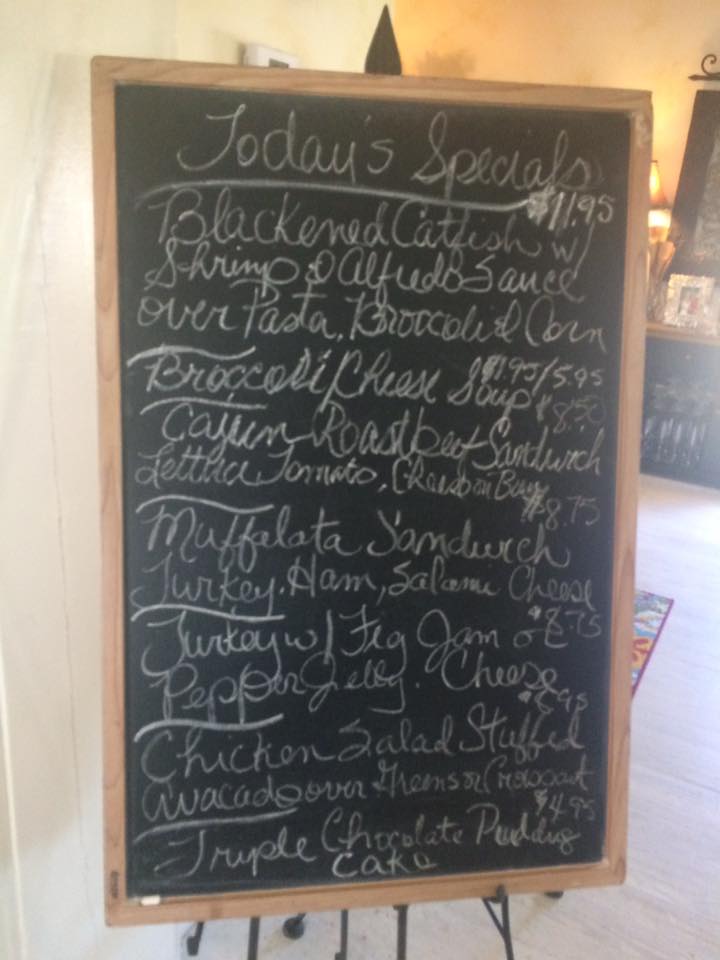 Today's Specials
$11.95
Blackened Catfish w/
Shrimp & Alfredo Sauce
over Pasta, Broccoli & Corn
$1.95/5.95
Broccoli Cheese Soup
$8.50
Cajun Roastbeef Sandwich
Lettuce Tomato, Cheese on
$8.75
Muffalata Sandwich
Turkey. Ham, Salami Cheese
$8.75
Turkey w/ Fig Jam or
Pepper Jelly. Cheese
Chicken Salad Stuffed
avacado over Greens or
$4.95
Triple Chocolate Pudding
Cake